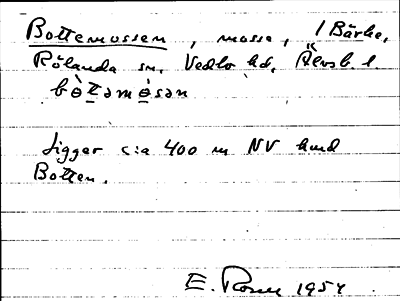 Bottemossen, mosse, 1 Bärke,
Rölanda sn, Vedbo hd, Älvsb. l.
bòtəmòsən
Ligger c:a 400 m NV
Botten.
E. 1954